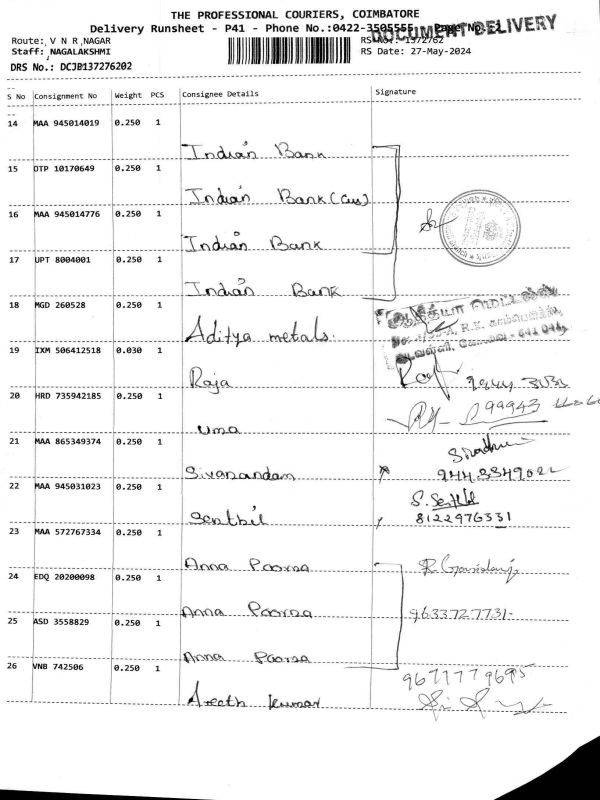 THE PROFESSIONAL COURIERS, COIMBATORE
Delivery Runsheet - P41 - Phone No.:0422-3505555 Page No.:2
DOCUMENT DELIVERY
Route: V N R NAGAR RS No.: 1372762
Staff: NAGALAKSHMI RS Date: 27-May-2024
DRS No.: DCJB137276202
S No Consignment No Weight PCS Consignee Details Signature
14 MAA 945014019 0.250 1 Indian Bank
15 OTP 10170649 0.250 1 Indian Bank (Cus)
16 MAA 945014776 0.250 1 Indian Bank
17 UPT 8004001 0.250 1 Indian Bank
18 MGD 260528 0.250 1 Aditya metals.
ஆதித்யா மெட்டல்ஸ்
19 IXM 506412518 0.030 1 Raja
20 HRD 735942185 0.250 1 Uma
99943
21 MAA 865349374 0.250 1 Sivanandam
22 MAA 945031023 0.250 1 Senthil S. Senthil
8122976331
23 MAA 572767334 0.250 1 Anna Poorna
24 EDQ 20200098 0.250 1 Anna Poorna 9633727731-
25 ASD 3558829 0.250 1 Anna Poorna
26 VNB 742506 0.250 1 Areeth kumar